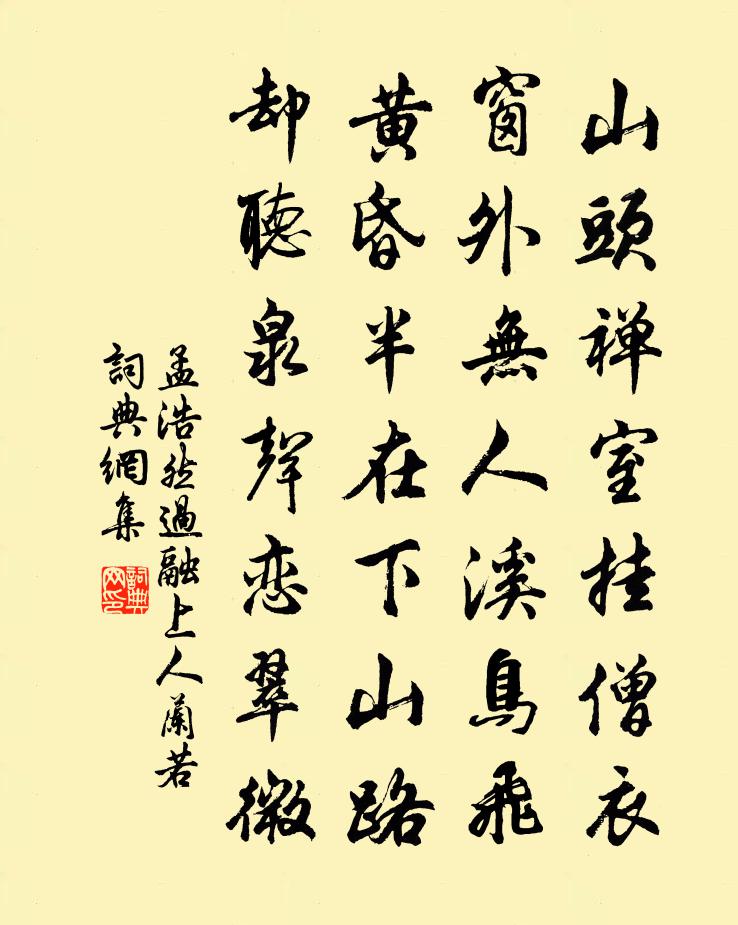 山頭禅室挂僧衣
窗外無人溪鳥飛
黃昏半在下山路
却聽泉聲恋翠微
孟浩然過融上人蘭若
詞典網集
詞典网印